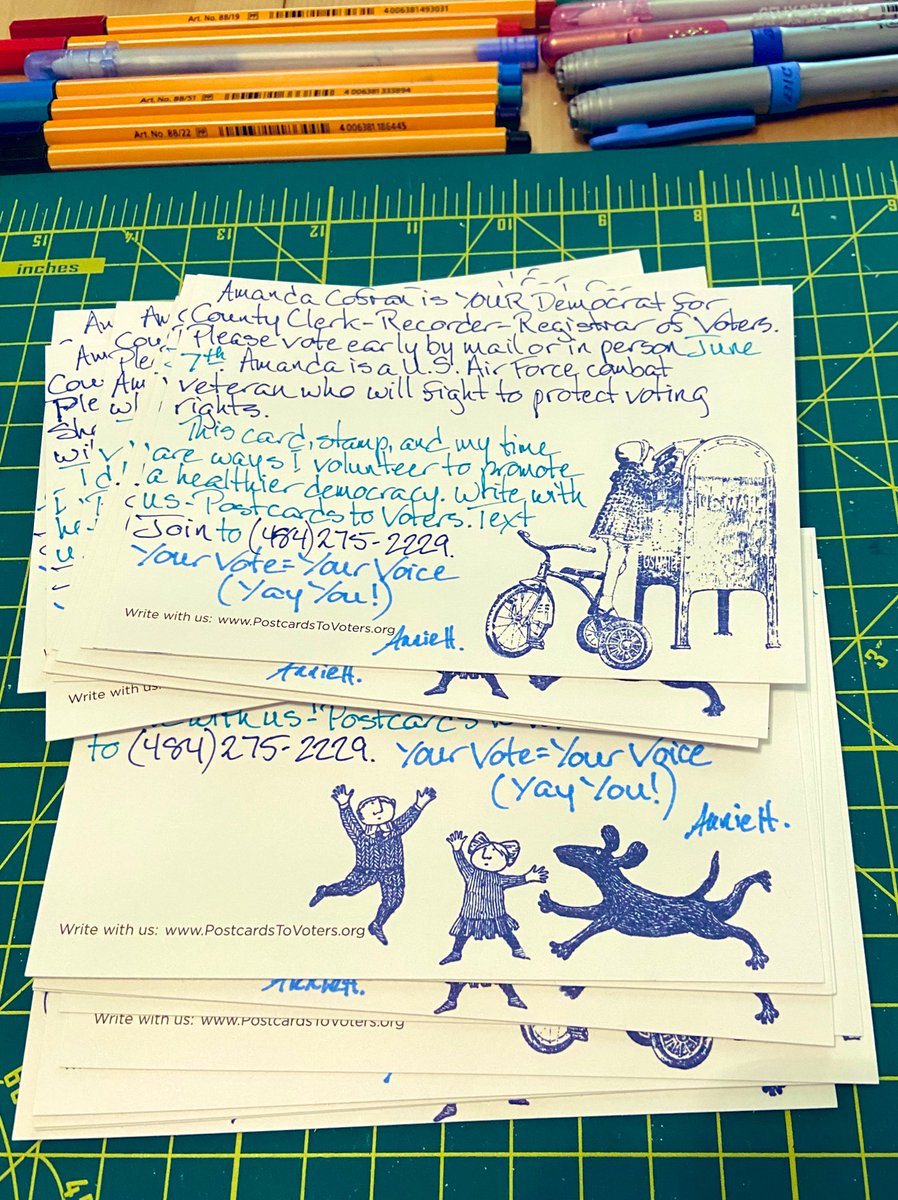 Art. No. 88/19
4 006381 493031
Art. No. 88/51
4 006381 333894
Art. No. 88/22
4 006381 186445
BIC
15
14
13
12
11
10
9
8
7
6
inches
Amanda Cofran is YOUR Democrat for
County Clerk-Recorder-Registrar of Voters.
Please vote early by mail or in person June
7th. Amanda is a U.S. Air Force combat
veteran who will fight to protect voting
rights.
This card, stamp, and my time
are ways I volunteer to promote
a healthier democracy. Write with
us-Postcards to Voters. Text
Join to (484)275-2229.
Your Vote=Your Voice
(Yay You!)
Write with us: www.PostcardsToVoters.org
AnnieH.
U.S. MAIL
AnnieH.
Write with us:
with us-"Postcards
to (484)275-2229. Your Vote=Your Voice
(Yay You!)
AnnieH.
Write with us: www.PostcardsToVoters.org
AnnieH.
Write with us: www.PostcardsToVoters.org
3"